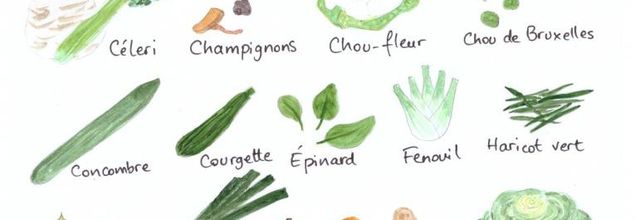 Céleri
Champignons
Chou-fleur
Chou de Bruxelles
Concombre
Courgette
Épinard
Fenouil
Haricot vert